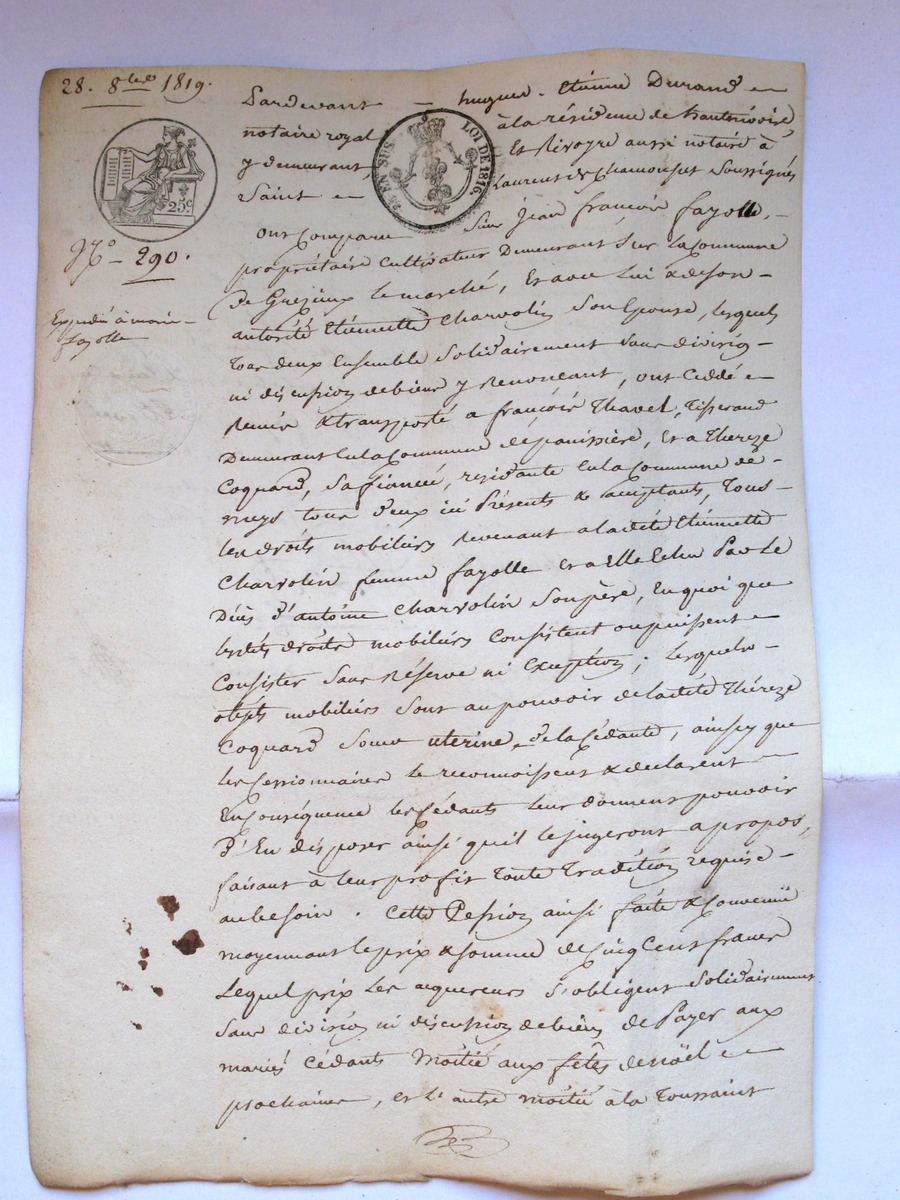 28. 8bre 1819.
Pardevant – hugues-Etienne Durand
notaire royal à la résidence de hauterivoire,
y demeurant Et Rivoyre aussi notaire à
Saint Laurent de Chamousset Soussignés
EN SUS
LOI DE 1816.
25c
No 290.
Expédié à marie
fayolle
ont Comparu Sieur Jean françois fayolle,
propriétaire cultivateur Demeurant Sur La Commune
de Grézieux le marché, Et avec lui & de son
autorité Etiennette Charvolin Son Epouse, lesquels
tous deux Ensemble Solidairement Sans division
ni discussion de biens y Renonceant, ont Cédé
Remis & transporté a françois Thavel, Tisserand
Demeurant En la Commune de panissière, Et a Thereze
Coquard, Sa fiancée, résidante En la Commune de
meys tous d'eux ici Présents & acceptants, Tous
les droits mobiliers revenant a ladite Etiennette
Charvolin femme fayolle Et a Elle Echu Par Le
Décès d'antoine Charvolin Son père, En quoi que
lesdits droits mobiliers Consistent ou puissent
Consister Sans Réserve ni Exception; Lesquels
objets mobiliers Sont au pouvoir de ladite Théreze
Coquard Soeur uterine de la Cédante, ainsy que
les Cessionnaires le reconnoissent & declarent
En Conséquence les Cédants leur donnent pouvoir
D'En disposer ainsi qu'il le jugeront a propos,
faisant à leur profit Toute Tradition requise
au besoin. Cette Cession ainsi faite & Convenue
moyennant le prix & somme de Cinq Cent francs
Lequel prix les acquereurs S'obligent Solidairement
Sans division ni discussion de biens de Payer aux
mariés Cédants Moitié aux fêtes de noël
prochaines, et l'autre moitié à la Toussaint